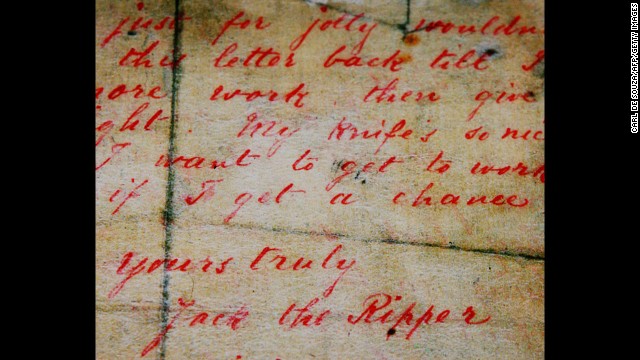 just for jolly wouldn
this letter back till I
more work then give
ght My knife's so nic
I want to get to work
if I get a chance
yours truly
Jack the Ripper
CARL DE SOUZA/AFP/GETTY IMAGES